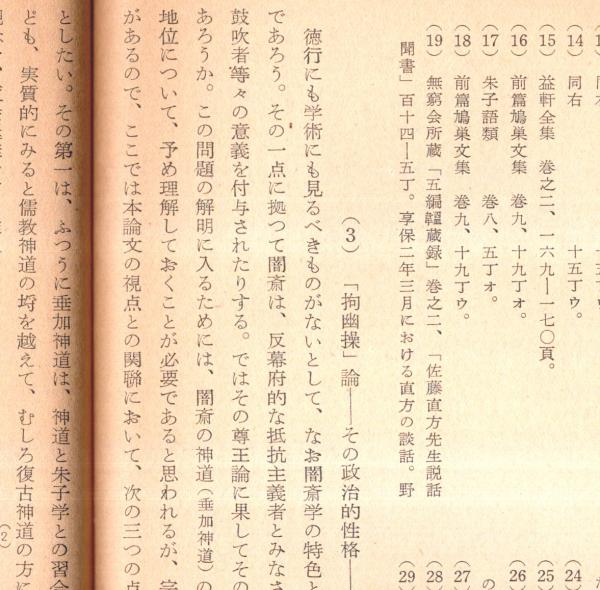 (14) 同右　十五丁ウ。
(15) 益軒全集　巻之二、一六九―一七〇頁。
(16) 前篇鳩巣文集　巻九、十九丁オ。
(17) 朱子語類　巻八、五丁オ。
(18) 前篇鳩巣文集　巻九、十九丁ウ。
(19) 無窮会所蔵「五編韞蔵録」巻之二、「佐藤直方先生説話
聞書」百十四―五丁。享保二年三月における直方の談話。野
(24)
(25)
(26)
の
(27)
(28)
(29)
(3)　「拘幽操」論――その政治的性格――
徳行にも学術にも見るべきものがないとして、なお闇斎学の特色と
であろう。その一点に拠つて闇斎は、反幕府的な抵抗主義者とみなさ
鼓吹者等々の意義を付与されたりする。ではその尊王論に果してその
あろうか。この問題の解明に入るためには、闇斎の神道（垂加神道）の
地位について、予め理解しておくことが必要であると思われるが、
があるので、ここでは本論文の視点との関聯において、次の三つの点
としたい。その第一は、ふつうに垂加神道は、神道と朱子学との習合
ども、実質的にみると儒教神道の埒を越えて、むしろ復古神道の方に
(2)